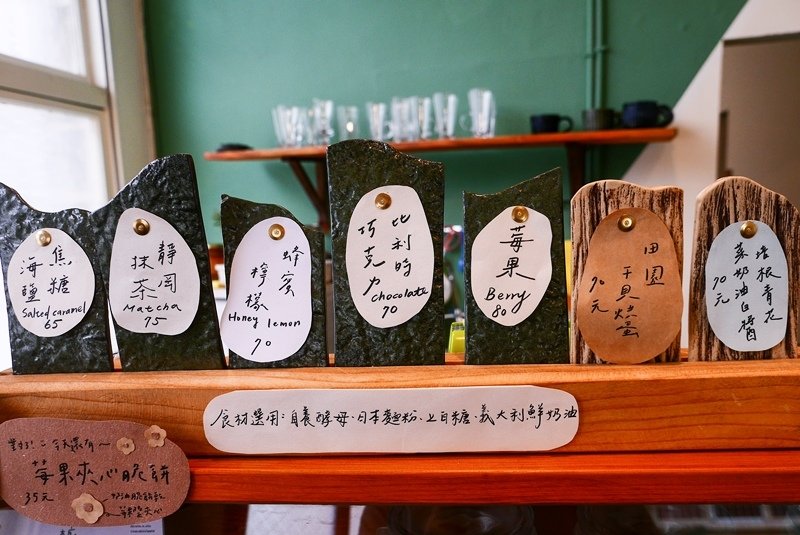 焦糖
海鹽
Salted caramel
65
靜岡
抹茶
Matcha
75
蜂蜜
檸檬
Honey lemon
70
比利時
巧克力
chocolate
70
莓果
Berry
80
田園
干貝烘蛋
90元
培根青花
菜奶油白醬
90元
食材選用：自養酵母、日本麵粉、上白糖、義大利鮮奶油
今天還有～
莓果夾心脆餅
35元